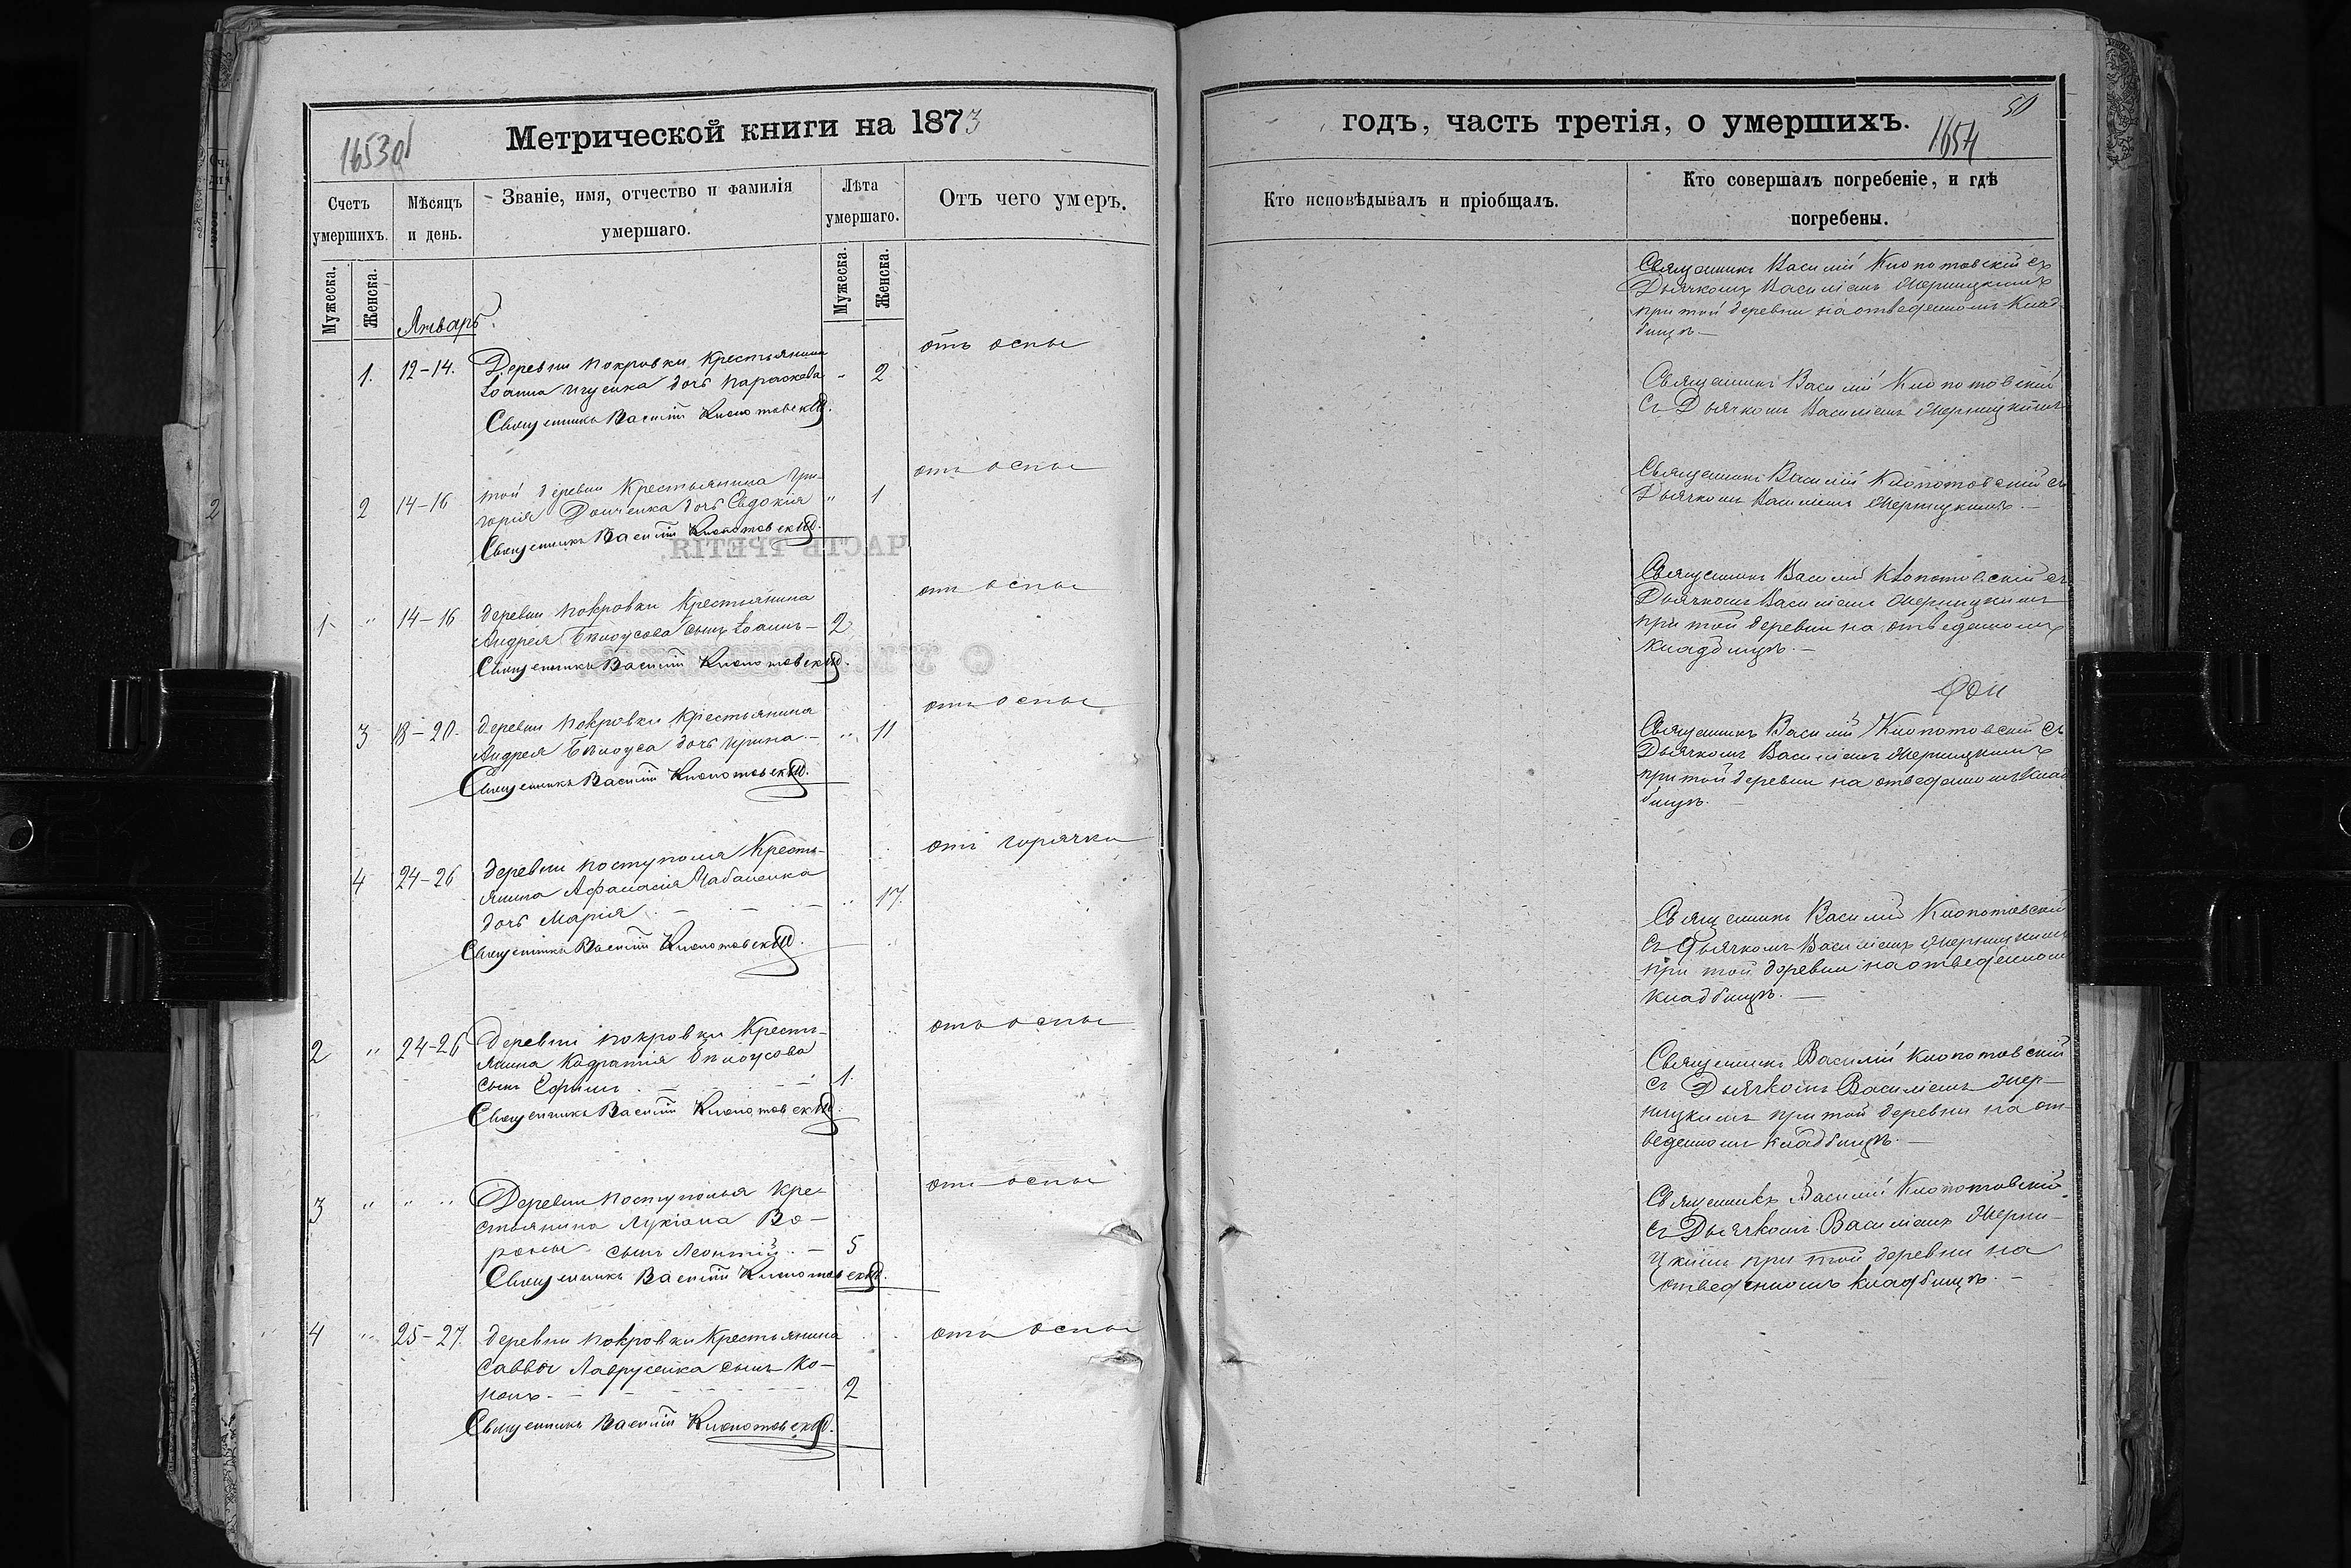 Метрической книги на 1873
Счетъ умершихъ.
Мужеска.
Женска.
Мѣсяцъ и день.
Званіе, имя, отчество и фамилія умершаго.
Лѣта умершаго.
Мужеска.
Женска.
Отъ чего умеръ.
Январь.
1. 12-14. Деревни Покровки Крестьянина 
дочь Параскева - 2
отъ оспы
Священникъ Василій Клопотовскій.
2 14-16 той деревни Крестьянина Гри-
горія дочь Евдокія " 1
отъ оспы
Священникъ Василій Клопотовскій.
ЧАСТЬ ТРЕТІЯ.
1. " 14-16 деревни Покровки Крестьянина
Андрея Бѣлоусова сынъ Іоаннъ - 2
отъ оспы
Священникъ Василій Клопотовскій.
3 18-20. деревни Покровки Крестьянина
Андрея Бѣлоуса дочь Ирина. - " 11
отъ оспы
Священникъ Василій Клопотовскій.
4 24-26 деревни Поступолья Кресть-
янина Афанасія Чабаненка
дочь Марія - - - " 17.
отъ горячки
Священникъ Василій Клопотовскій.
2 " 24-26 деревни Покровки Кресть-
янина Кодратія Бѣлоусова
сынъ Ефимъ. - - 1.
отъ оспы
Священникъ Василій Клопотовскій.
3 " " " Деревни Поступолья Кре-
стьянина Лукіана Во-
роны сынъ Леонтій. - 5
отъ оспы
Священникъ Василій Клопотовскій.
4 " 25-27. деревни Покровки Крестьянина
Саввы Лаврусенка сынъ Ко-
нонъ. - - 2
отъ оспы
Священникъ Василій Клопотовскій.
годъ, часть третія, о умершихъ.
1654
50
Кто исповѣдывалъ и пріобщалъ.
Кто совершалъ погребеніе, и гдѣ
погребены.
Священникъ Василій Клопотовскій съ
Дьячкомъ Василіемъ
при той деревни на отведенномъ Клад-
бищѣ. -
Священникъ Василій Клопотовскій
съ Дьячкомъ Василіемъ
Священникъ Василій Клопотовскій съ
Дьячкомъ Василіемъ
Священникъ Василій Клопотовскій съ
Дьячкомъ Василіемъ
при той деревни на отведенномъ
кладбищѣ. -
Священникъ Василій Клопотовскій съ
Дьячкомъ Василіемъ
при той деревни на отведенномъ Клад
бищѣ.
Священникъ Василій Клопотовскій
съ Дьячкомъ Василіемъ
при той деревни на отведенномъ
кладбищѣ. -
Священникъ Василій Клопотовскій
съ Дьячкомъ Василіемъ
при той деревни на от-
веденномъ кладбищѣ. -
Священникъ Василій Клопотовскій
съ Дьячкомъ Василіемъ
при той деревни на
отведенномъ кладбищѣ. -